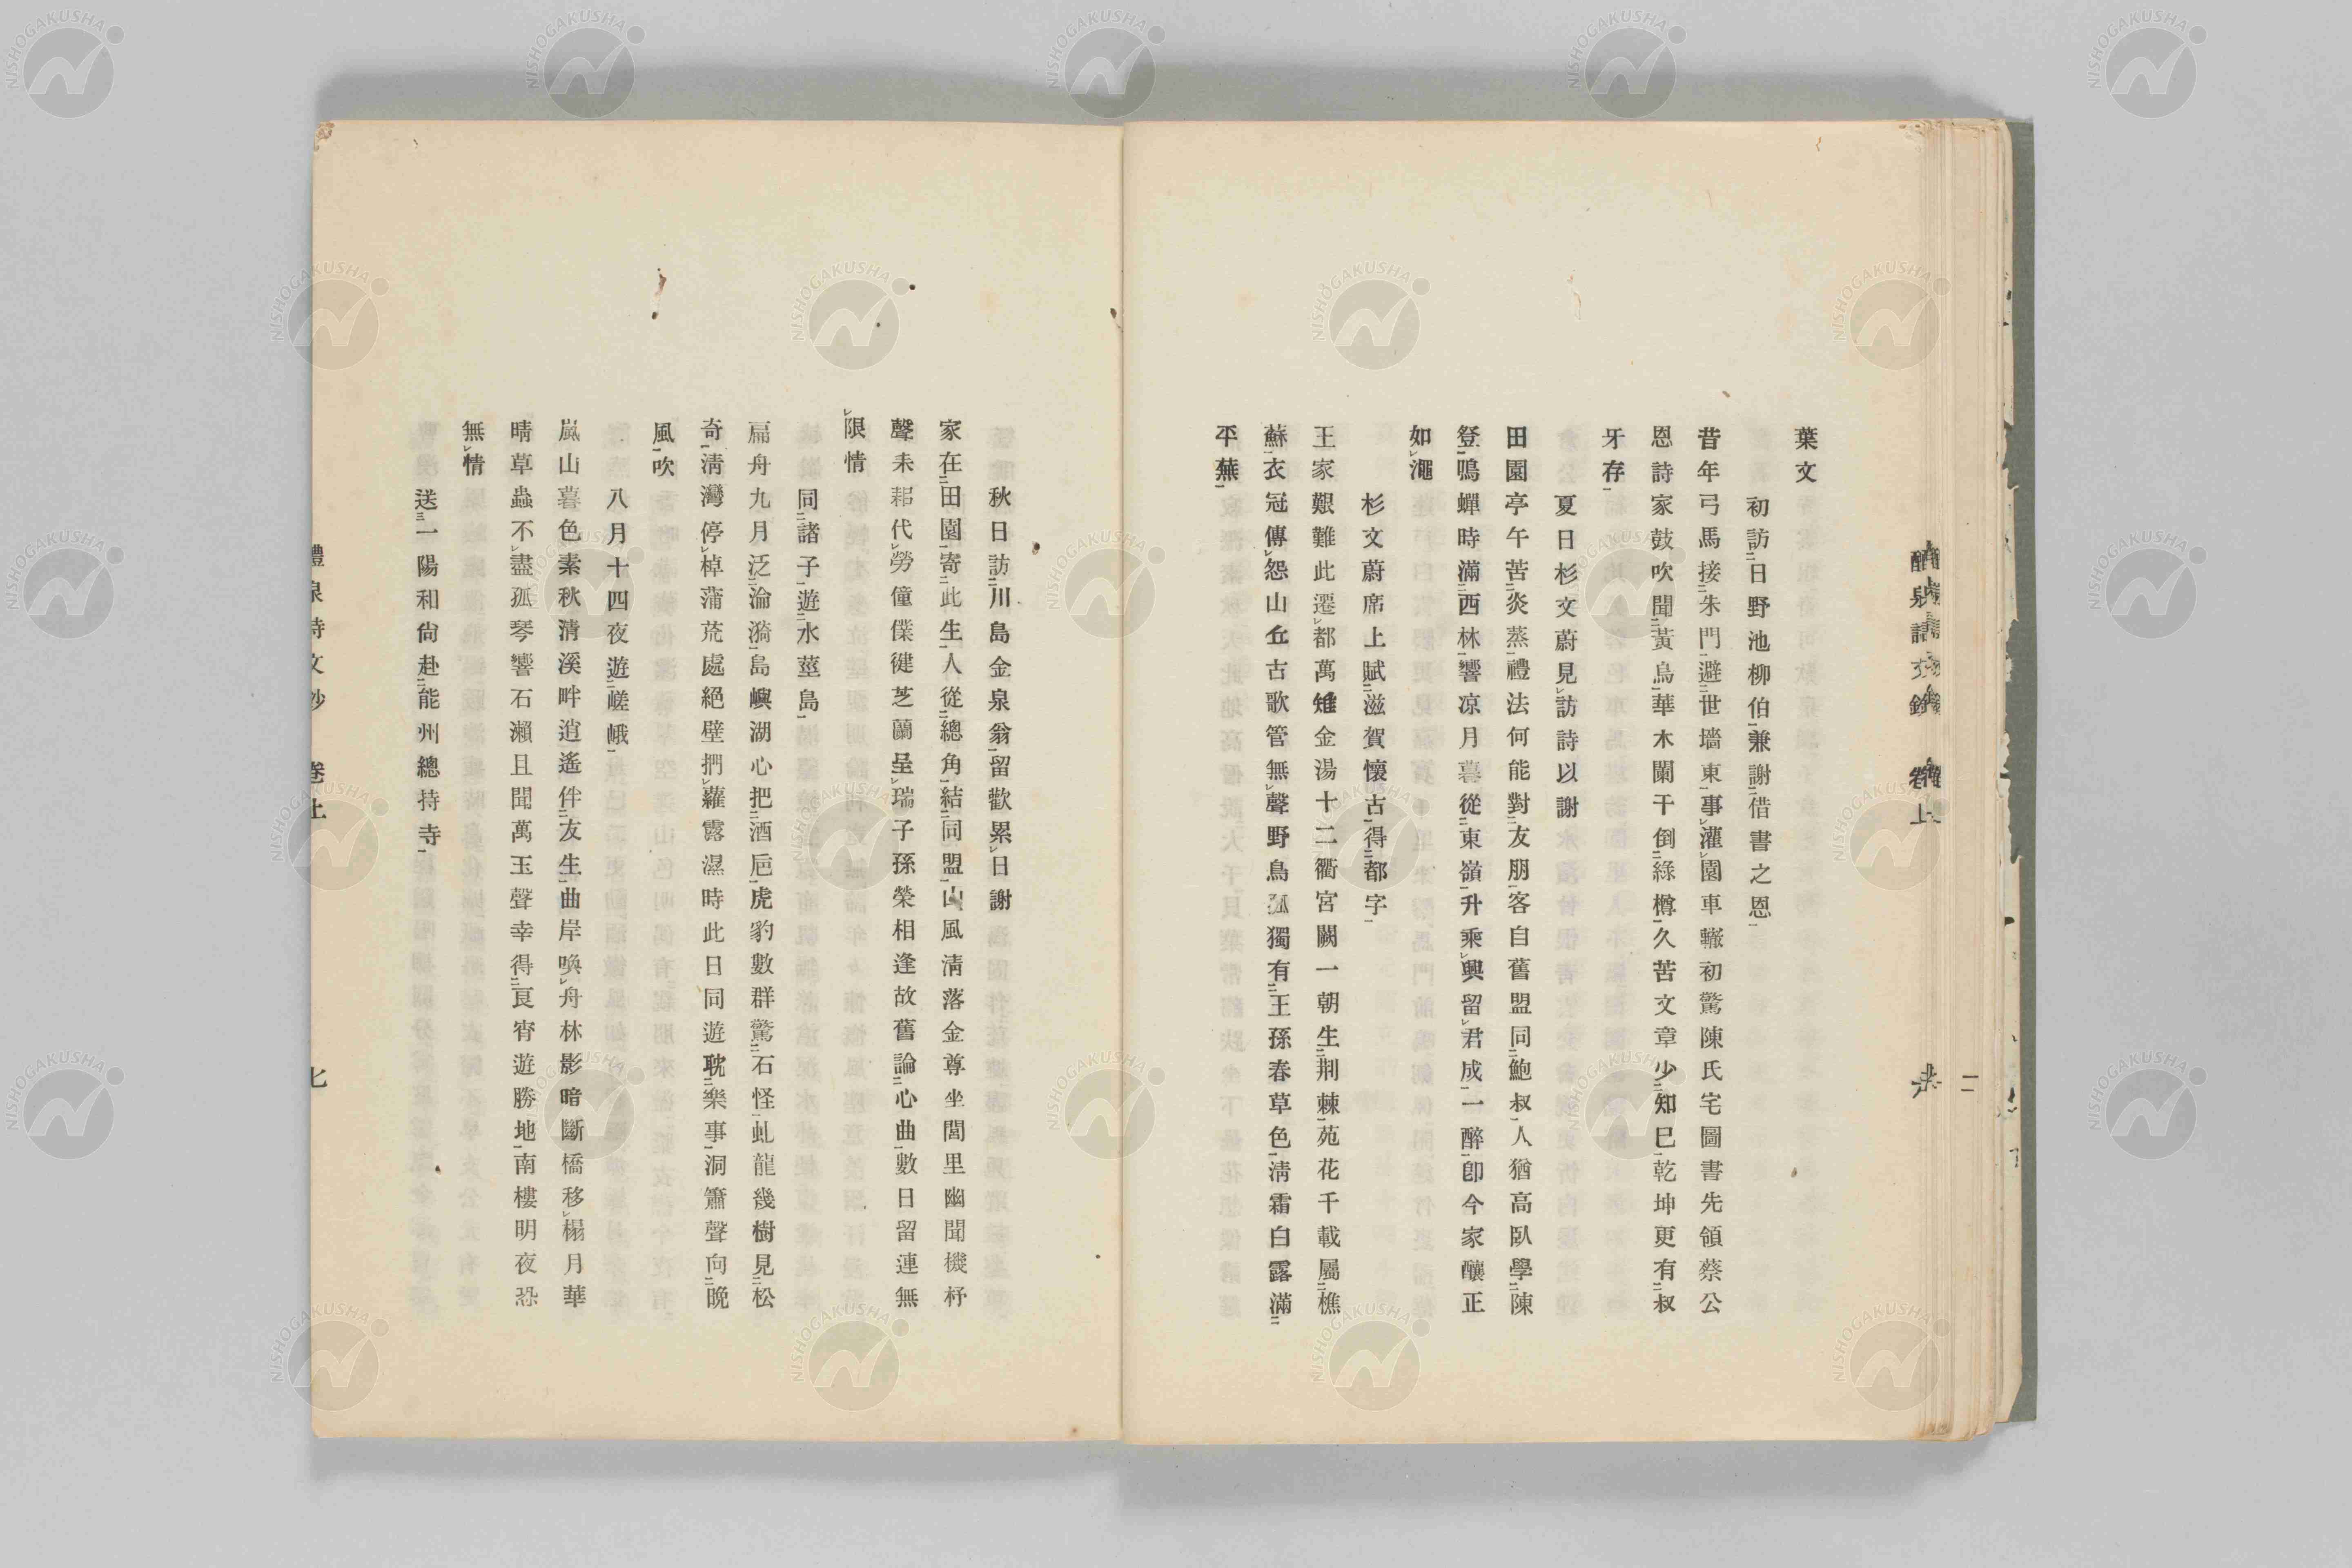 葉文
初訪日野池柳伯兼謝借書之恩
昔年弓馬接朱門避世墻東事灌園車轍初驚陳氏宅圖書先領蔡公
恩詩家鼓吹聞黃鳥華木闌干倒綠樽久苦文章少知巳乾坤更有叔
牙存
夏日杉文蔚見訪詩以謝
田園亭午苦炎蒸禮法何能對友朋客自舊盟同鮑叔人猶高臥學陳
登鳴蟬時滿西林響凉月暮從東嶺升乘興留君成一醉卽今家釀正
如澠
杉文蔚席上賦滋賀懷古得都字
王家艱難此遷都萬雉金湯十二衢宮闕一朝生荆棘苑花千載屬樵
蘇衣冠傳怨山丘古歌管無聲野鳥孤獨有王孫春草色淸霜白露滿
平蕪
秋日訪川島金泉翁留歡累日謝
家在田園寄此生人從總角結同盟山風淸落金尊坐閭里幽聞機杼
聲未耜代勞僮僕健芝蘭呈瑞子孫榮相逢故舊論心曲數日留連無
限情
同諸子遊水莖島
扁舟九月泛淪漪島嶼湖心把酒巵虎豹數群驚石怪虬龍幾樹見松
奇淸灣停棹蒲荒處絕壁捫蘿露濕時此日同遊耽樂事洞簫聲向晚
風吹
八月十四夜遊嵯峨
嵐山暮色素秋淸溪畔逍遙伴友生曲岸喚舟林影暗斷橋移榻月華
晴草蟲不盡孤琴響石瀨且聞萬玉聲幸得良宵遊勝地南樓明夜恐
無情
送一陽和尙赴能州總持寺
醴泉詩文鈔 卷上 七
NISHOGAKUSHA